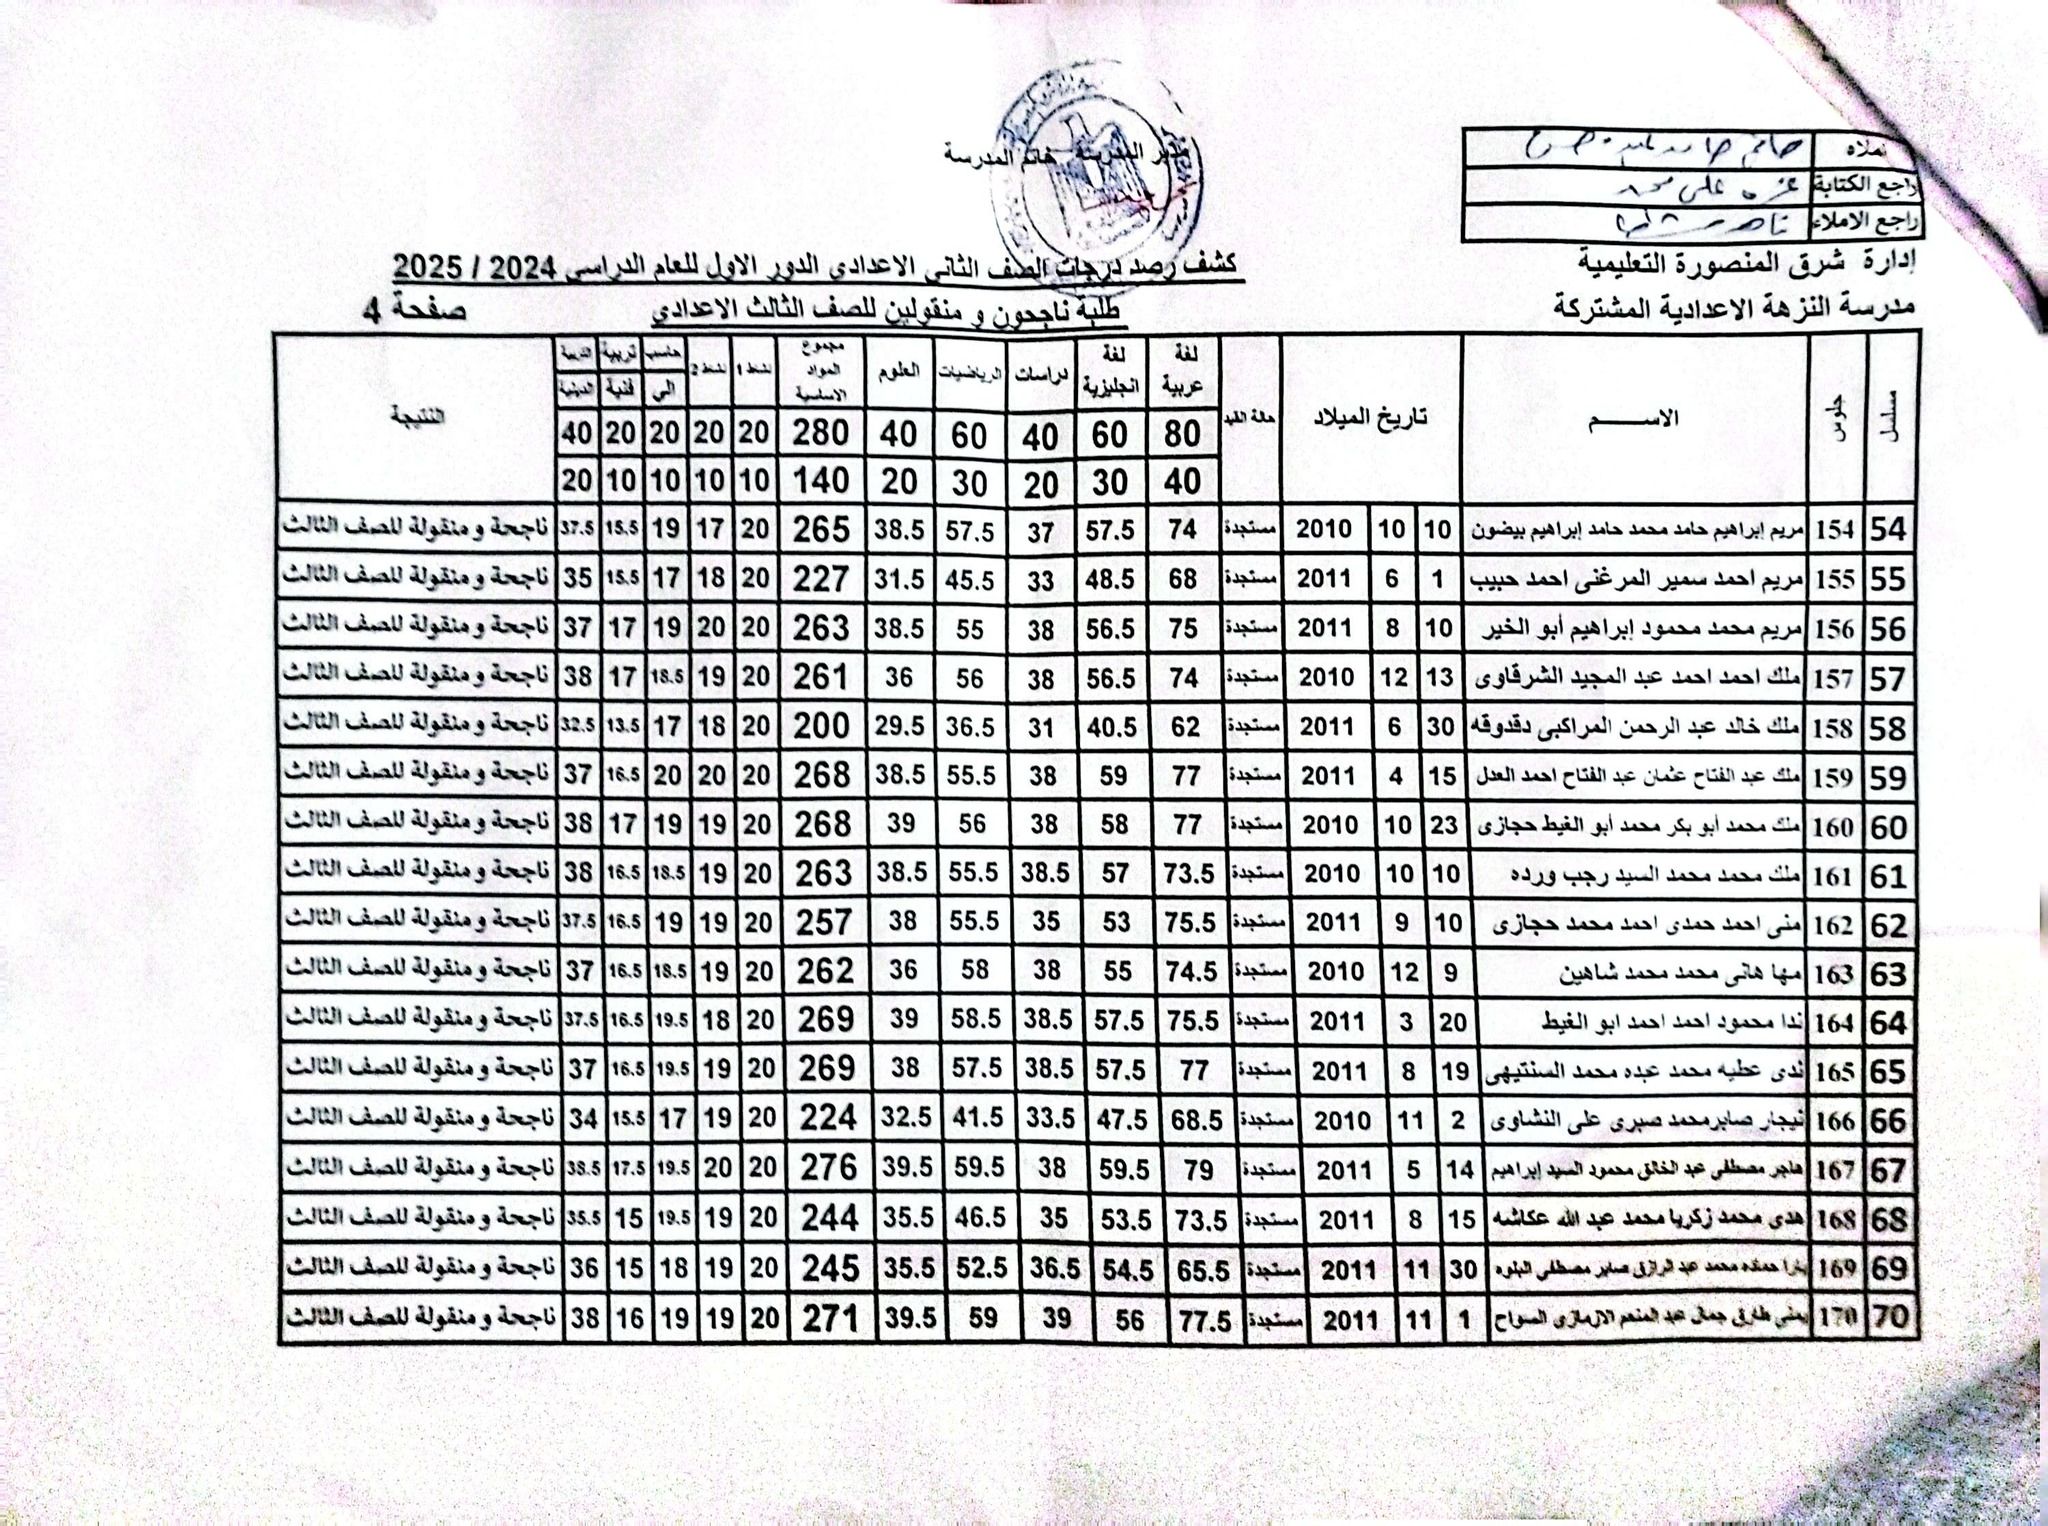 مدير المدرسة خاتم المدرسة
نملاه
راجع الكتابة عزه على محمد
راجع الاملاء
إدارة شرق المنصورة التعليمية
مدرسة النزهة الاعدادية المشتركة
كشف رصد درجات الصف الثاني الاعدادي الدور الاول للعام الدراسي 2024 / 2025
طلبة ناجحون و منقولين للصف الثالث الاعدادي
صفحة 4
مسلسل جلوس الاســـم تاريخ الميلاد حالة القيد لغة عربية لغة انجليزية دراسات الرياضيات العلوم مجموع المواد الاساسية نشاط 1 نشاط 2 حاسب الي تربية فنية التربية الدينية النتيجة
80 60 40 60 40 280 20 20 20 20 40
40 30 20 30 20 140 10 10 10 10 20
54 154 مريم إبراهيم حامد محمد حامد إبراهيم بيضون 10 10 2010 مستجدة 74 57.5 37 57.5 38.5 265 20 17 19 15.5 37.5 ناجحة و منقولة للصف الثالث
55 155 مريم احمد سمير المرغنى احمد حبيب 1 6 2011 مستجدة 68 48.5 33 45.5 31.5 227 20 18 17 15.5 35 ناجحة و منقولة للصف الثالث
56 156 مريم محمد محمود إبراهيم أبو الخير 10 8 2011 مستجدة 75 56.5 38 55 38.5 263 20 20 19 17 37 ناجحة و منقولة للصف الثالث
57 157 ملك احمد احمد عبد المجيد الشرقاوى 13 12 2010 مستجدة 74 56.5 38 56 36 261 20 19 18.5 17 38 ناجحة و منقولة للصف الثالث
58 158 ملك خالد عبد الرحمن المراكبى دقدوقه 30 6 2011 مستجدة 62 40.5 31 36.5 29.5 200 20 18 17 13.5 32.5 ناجحة و منقولة للصف الثالث
59 159 ملك عبد الفتاح عثمان عبد الفتاح احمد العدل 15 4 2011 مستجدة 77 59 38 55.5 38.5 268 20 20 20 16.5 37 ناجحة و منقولة للصف الثالث
60 160 ملك محمد أبو بكر محمد أبو الغيط حجازى 23 10 2010 مستجدة 77 58 38 56 39 268 20 19 19 17 38 ناجحة و منقولة للصف الثالث
61 161 ملك محمد محمد السيد رجب ورده 10 10 2010 مستجدة 73.5 57 38.5 55.5 38.5 263 20 19 18.5 16.5 38 ناجحة و منقولة للصف الثالث
62 162 منى احمد حمدى احمد محمد حجازى 10 9 2011 مستجدة 75.5 53 35 55.5 38 257 20 19 19 16.5 37.5 ناجحة و منقولة للصف الثالث
63 163 مها هانى محمد محمد شاهين 9 12 2010 مستجدة 74.5 55 38 58 36 262 20 19 18.5 16.5 37 ناجحة و منقولة للصف الثالث
64 164 ندا محمود احمد احمد ابو الغيط 20 3 2011 مستجدة 75.5 57.5 38.5 58.5 39 269 20 18 19.5 16.5 37.5 ناجحة و منقولة للصف الثالث
65 165 ندى عطيه محمد عبده محمد السنتيهى 19 8 2011 مستجدة 77 57.5 38.5 57.5 38 269 20 19 19.5 16.5 37 ناجحة و منقولة للصف الثالث
66 166 نيجار صابرمحمد صبرى على النشاوى 2 11 2010 مستجدة 68.5 47.5 33.5 41.5 32.5 224 20 19 17 15.5 34 ناجحة و منقولة للصف الثالث
67 167 هاجر مصطفى عبد الخالق محمود السيد إبراهيم 14 5 2011 مستجدة 79 59.5 38 59.5 39.5 276 20 20 19.5 17.5 38.5 ناجحة و منقولة للصف الثالث
68 168 هدى محمد زكريا محمد عبد الله عكاشه 15 8 2011 مستجدة 73.5 53.5 35 46.5 35.5 244 20 19 19.5 15 35.5 ناجحة و منقولة للصف الثالث
69 169 يارا حماده محمد عبد الرازق صابر مصطفى البلوه 30 11 2011 مستجدة 65.5 54.5 36.5 52.5 35.5 245 20 19 18 15 36 ناجحة و منقولة للصف الثالث
70 170 يمنى طارق جمال عبد المنعم الازمازى السواح 1 11 2011 مستجدة 77.5 56 39 59 39.5 271 20 19 19 16 38 ناجحة و منقولة للصف الثالث